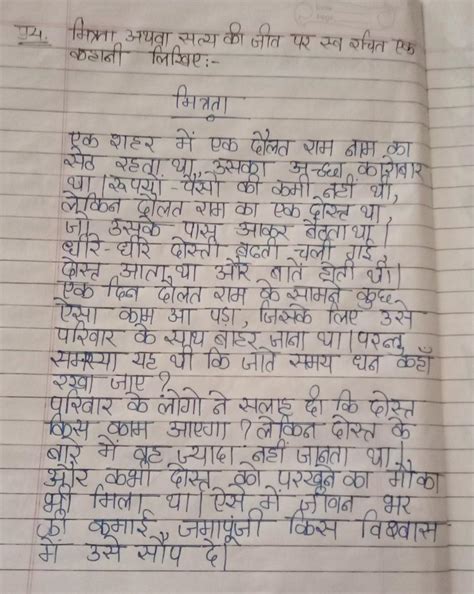 प्र4. मित्रता अथवा सत्य की जीत पर स्व रचित एक
कहानी लिखिए:-
मित्रता
एक शहर में एक दौलत राम नाम का
सेठ रहता था, उसका अच्छा कारोबार
था। रूपयों-पैसों की कमी नहीं थी,
लेकिन दौलत राम का एक दोस्त था,
जो उसके पास आकर बैठता था।
धीरे-धीरे दोस्ती बढ़ती चली गई,
दोस्त आता था और बातें होती थी।
एक दिन दौलत राम के सामने कुछ
ऐसा काम आ पड़ा, जिसके लिए उसे
परिवार के साथ बाहर जाना था। परन्तु
समस्या यह थी कि जाते समय धन कहाँ
रखा जाए?
परिवार के लोगो ने सलाह दी कि दोस्त
किस काम आएगा? लेकिन दोस्त के
बारे में वह ज्यादा नहीं जानता था।
और कभी दोस्त को परखने का मौका
भी मिला था। ऐसे में जीवन भर
की कमाई जमापूंजी किस विश्वास
में उसे सौंप दे।